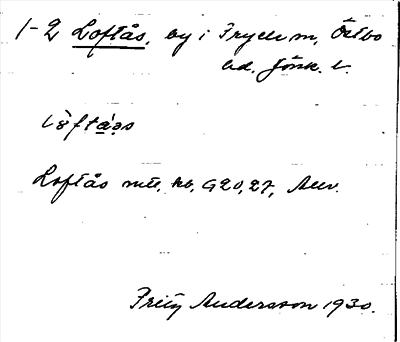 1-2 Loftås, by i Fryele sn, Östbo
hd. Jönk. l.
lòftá̱əs
Loftås mtl. kb. G20,27,
Fritz Andersson 1930.